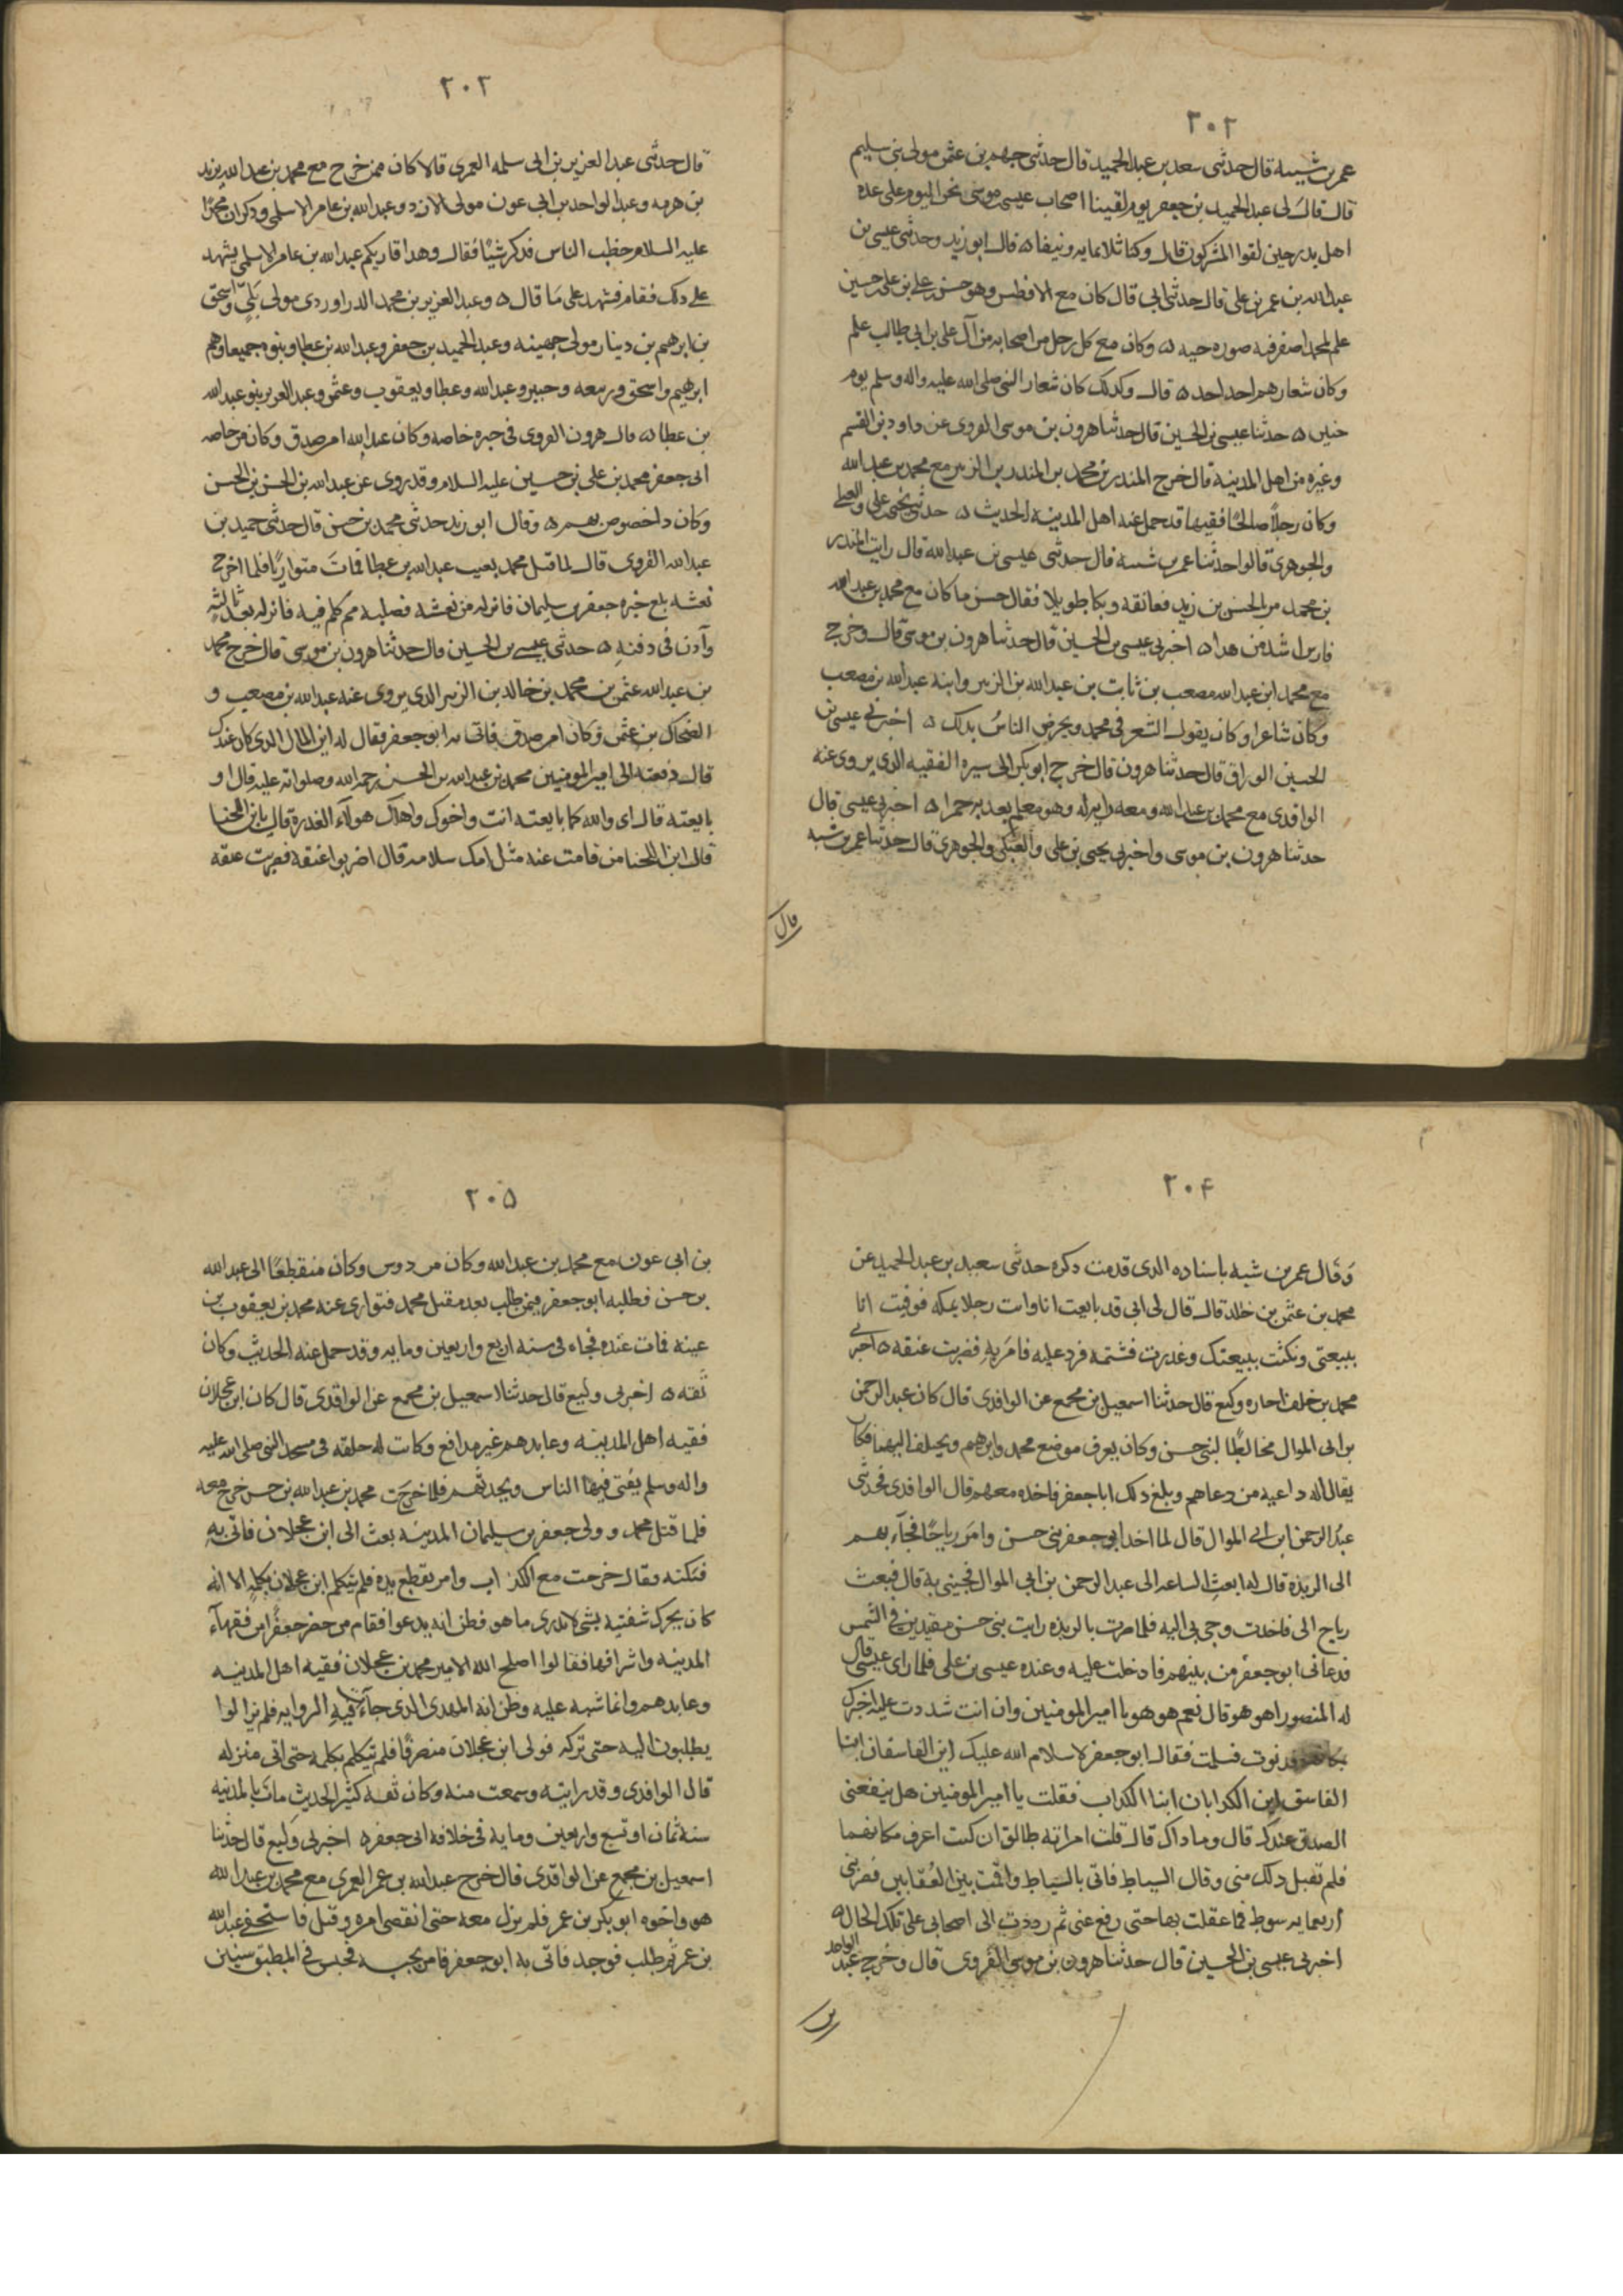 ٢٠٢
عمر بن شبه قال حدثنى سعد بن عبد الحميد قال حدثنى جهم بن عثمن مولى بنى سليم
قال قال لى عبد الحميد بن جعفر يوم لقينا اصحاب عيسى بن موسى نحن اليوم على عده
اهل بدر حين لقوا المشركون قال وكنا ثلاثمايه ونيفا ه قال ابو زيد وحدثنى عيسى بن
عبد الله بن عمر بن على قال حدثنى ابى قال كان مع الافطس وهو حسن بن على بن على بن حسين
علم لمحمد اصفر فيه صوره حيه ه وكان مع كل رجل من اصحابه من آل على بن ابى طالب علم
وكان شعارهم احد احد ه قال وكذلك كان شعار النبى صلى الله عليه واله وسلم يوم
حنين ه حدثنا عيسى بن الحسين قال حدثنا هرون بن موسى الفروى عن داود بن القسم
وغيره من اهل المدينة قال خرج المنذر بن محمد بن المنذر بن الزبير مع محمد بن عبد الله
وكان رجلاً صالحًا فقيها قد حمل عنه اهل المدينه الحديث ه حدثنى يحيى بن على والعتكى
والجوهرى قالوا حدثنا عمر بن شبه قال حدثنى عيسى بن عبد الله قال رايت المنذر
بن محمد مر الحسن بن زيد فعانقه وبكا طويلا فقال حسن ما كان مع محمد بن عبد الله
فارس اشد من هذا ه اخبرنى عيسى بن الحسين قال حدثنا هرون بن موسى قال وخرج
مع محمد ابن عبد الله مصعب بن ثابت بن عبد الله بن الزبير وابنه عبد الله بن مصعب
وكان شاعرا وكان يقول الشعر فى محمد ويحرض الناس بذلك ه اخبرنى عيسى بن
الحسين الوراق قال حدثنا هرون قال خرج ابو بكر بن ابى سبره الفقيه الذى يروى عنه
الواقدى مع محمد بن عبد الله ومعه رايه له وهو معلم بعذبه حمرا ه اخبرنى عيسى قال
حدثنا هرون بن موسى واخبرنى يحيى بن على والعتكى والجوهرى قال حدثنا عمر بن شبه
قال
٢٠٣
قال حدثنى عبد العزيز بن ابى سلمه العمرى قالا كان ممن خرج مع محمد بن عبد الله يزيد
بن هرمه وعبد الواحد بن ابى عون مولى الازد وعبد الله بن عامر الاسلمى وذكر ان محمدًا
عليه السلام خطب الناس فذكر شيئًا فقال وهذا قاريكم عبد الله بن عامر الاسلمى يشهد
على ذلك فقام فشهد على ما قال ه وعبد العزيز بن محمد الدراوردى مولى بَلِىّ واسحق
بن ابرهيم بن دينار مولى جهينه وعبد الحميد بن جعفر وعبد الله بن عطا وبنوه جميعا وهم
ابرهيم واسحق وربيعه وجبير وعبد الله وعطا ويعقوب وعثمن وعبد العزيز بنو عبد الله
بن عطا ه قال هرون الفروى فى خبره خاصه وكان عبد الله امر صدق وكان من خاصه
ابى جعفر محمد بن على بن حسين عليه السلام وقد روى عن عبد الله بن الحسن بن الحسن
وكان ذا خصوص بهم ه وقال ابو زيد حدثنى محمد بن حسن قال حدثنى حميد بن
عبد الله الفروى قال لما قتل محمد تغيب عبد الله بن عطا فمات متواريًا فلما اخرج
نعشه بلغ خبره جعفر بن سليمان فانزله من نعشه فصلبه ثم كلم فيه فانزله بعد ثالثه
وآذن فى دفنه ه حدثنى عيسى بن الحسين قال حدثنا هرون بن موسى قال خرج محمد
بن عبد الله عثمن بن محمد بن خالد بن الزبير الذى يروى عنه عبد الله بن مصعب و
الضحاك بن عثمن وكان امر صدق فاتى به ابو جعفر فقال له اين المال الذى كان عندك
قال دفعته الى امير المومنين محمد بن عبد الله بن الحسن رحمه الله وصلواته عليه قال او
بايعته قال اى والله كما بايعته انت واخوك واهلك هولآء الغدرة قال يا بن اللخنا
قال ابن اللخنا من قامت عنه مثل امك سلامه قال اضربوا عنقه فضربت عنقه
٢٠٤
وقال عمر بن شبه باسناده الذى قدمت ذكره حدثنى سعيد بن عبد الحميد عن
محمد بن عثمن بن خالد قال قال لى ابى قد بايعت انا وانت رجلا بمكه فوفيت انا
ببيعتى ونكثت ببيعتك وغدرت فشتمه فرد عليه فامر به فضربت عنقه ه اخبرنى
محمد بن خلف اجازه وكيع قال حدثنا اسمعيل بن مجمع عن الواقدى قال كان عبد الرحمن
بن ابى الموال مخالطًا لبنى حسن وكان يعرف موضع محمد وابرهيم ويختلف اليهما فكان
يقال له داعيه من دعاهم وبلغ ذلك ابا جعفر فاخذه معهم قال الواقدى فحدثنى
عبد الرحمن ابن ابى الموال قال لما اخذ ابو جعفر بنى حسن وامر رياحًا فجآء بهم
الى الربذه قال له ابعث الساعه الى عبد الرحمن بن ابى الموال فجيىنى به قال فبعث
رياح الى فاخذت وجى بى اليه فلما صرت بالربذه رايت بنى حسن مقيدين فى الشمس
فدعانى ابو جعفر من بينهم فادخلت عليه وعنده عيسى بن على فلما راى عيسى قال
له المنصور اهو هو قال نعم هو هو يا امير المومنين وان انت شددت عليه اخبرك
بمكانهم فدنوت فسلمت فقال ابو جعفر لا سلام الله عليك اين الفاسقان ابنا
الفاسق اين الكذابان ابنا الكذاب فقلت يا امير المومنين هل ينفعنى
الصدق عندك قال وما ذاك قال قلت امراته طالق ان كنت اعرف مكانهما
فلم تقبل ذلك منى وقال السياط فاتى بالسياط واقمت بين العُقابين فضربنى
اربعمايه سوط فما عقلت بها حتى رفع عنى ثم رددت الى اصحابى على تلك الحال ه
اخبرنى عيسى بن الحسين قال حدثنا هرون بن موسى الفروى قال وخرج عبد الواحد
بن
٢٠٥
بن ابى عون مع محمد بن عبد الله وكان من دوس وكان منقطعًا الى عبد الله
بن حسن فطلبه ابو جعفر فيمن طلب بعد مقتل محمد فتوارى عنه محمد بن يعقوب بن
عينه فمات عنده فجاه فى سنه اربع واربعين ومايه وقد حمل عنه الحديث وكان
ثقه ه اخبرنى وكيع قال حدثنا اسمعيل بن مجمع عن الواقدى قال كان ابن عجلان
فقيه اهل المدينه وعابدهم غير مدافع وكانت له حلقه فى مسجد النبى صلى الله عليه
واله وسلم يفتى فيها الناس ويحدثهم فلما خرجت محمد بن عبد الله بن حسن خرج معه
فلما قتل محمد وولى جعفر بن سليمان المدينه بعث الى ابن عجلان فاتى به
فبكته وقال خرجت مع الكذاب وامر بقطع يده فلم يتكلم ابن عجلان بكلمة الا انه
كان يحرك شفتيه بشى لا ندرى ما هو فظن انه يدعوا فقام من حضر جعفرًا من فقهآء
المدينه واشرافها فقالوا اصلح الله الامير محمد بن عجلان فقيه اهل المدينه
وعابدهم وانما شبه عليه وظن انه المهدى الذى جآءت فيه الروايه فلم يزالوا
يطلبون اليه حتى تركه فولى ابن عجلان منصرفًا فلم يتكلم بكلمه حتى اتى منزله
قال الواقدى وقد رايته وسمعت منه وكان ثقه كثير الحديث مات بالمدنيه
سنة ثمان او تسع واربعين ومايه فى خلافه ابى جعفر ه اخبرنى وكيع قال حدثنا
اسمعيل بن مجمع عن الواقدى قال خرج عبد الله بن عمر العمرى مع محمد بن عبد الله
هو واخوه ابو بكر بن عمر فلم يزل معه حتى انقضى امره وقتل فاستخفى عبد الله
بن عمر ثم طلب فوجد فاتى به ابو جعفر فامر بحبسه فحبس فى المطبق سنين